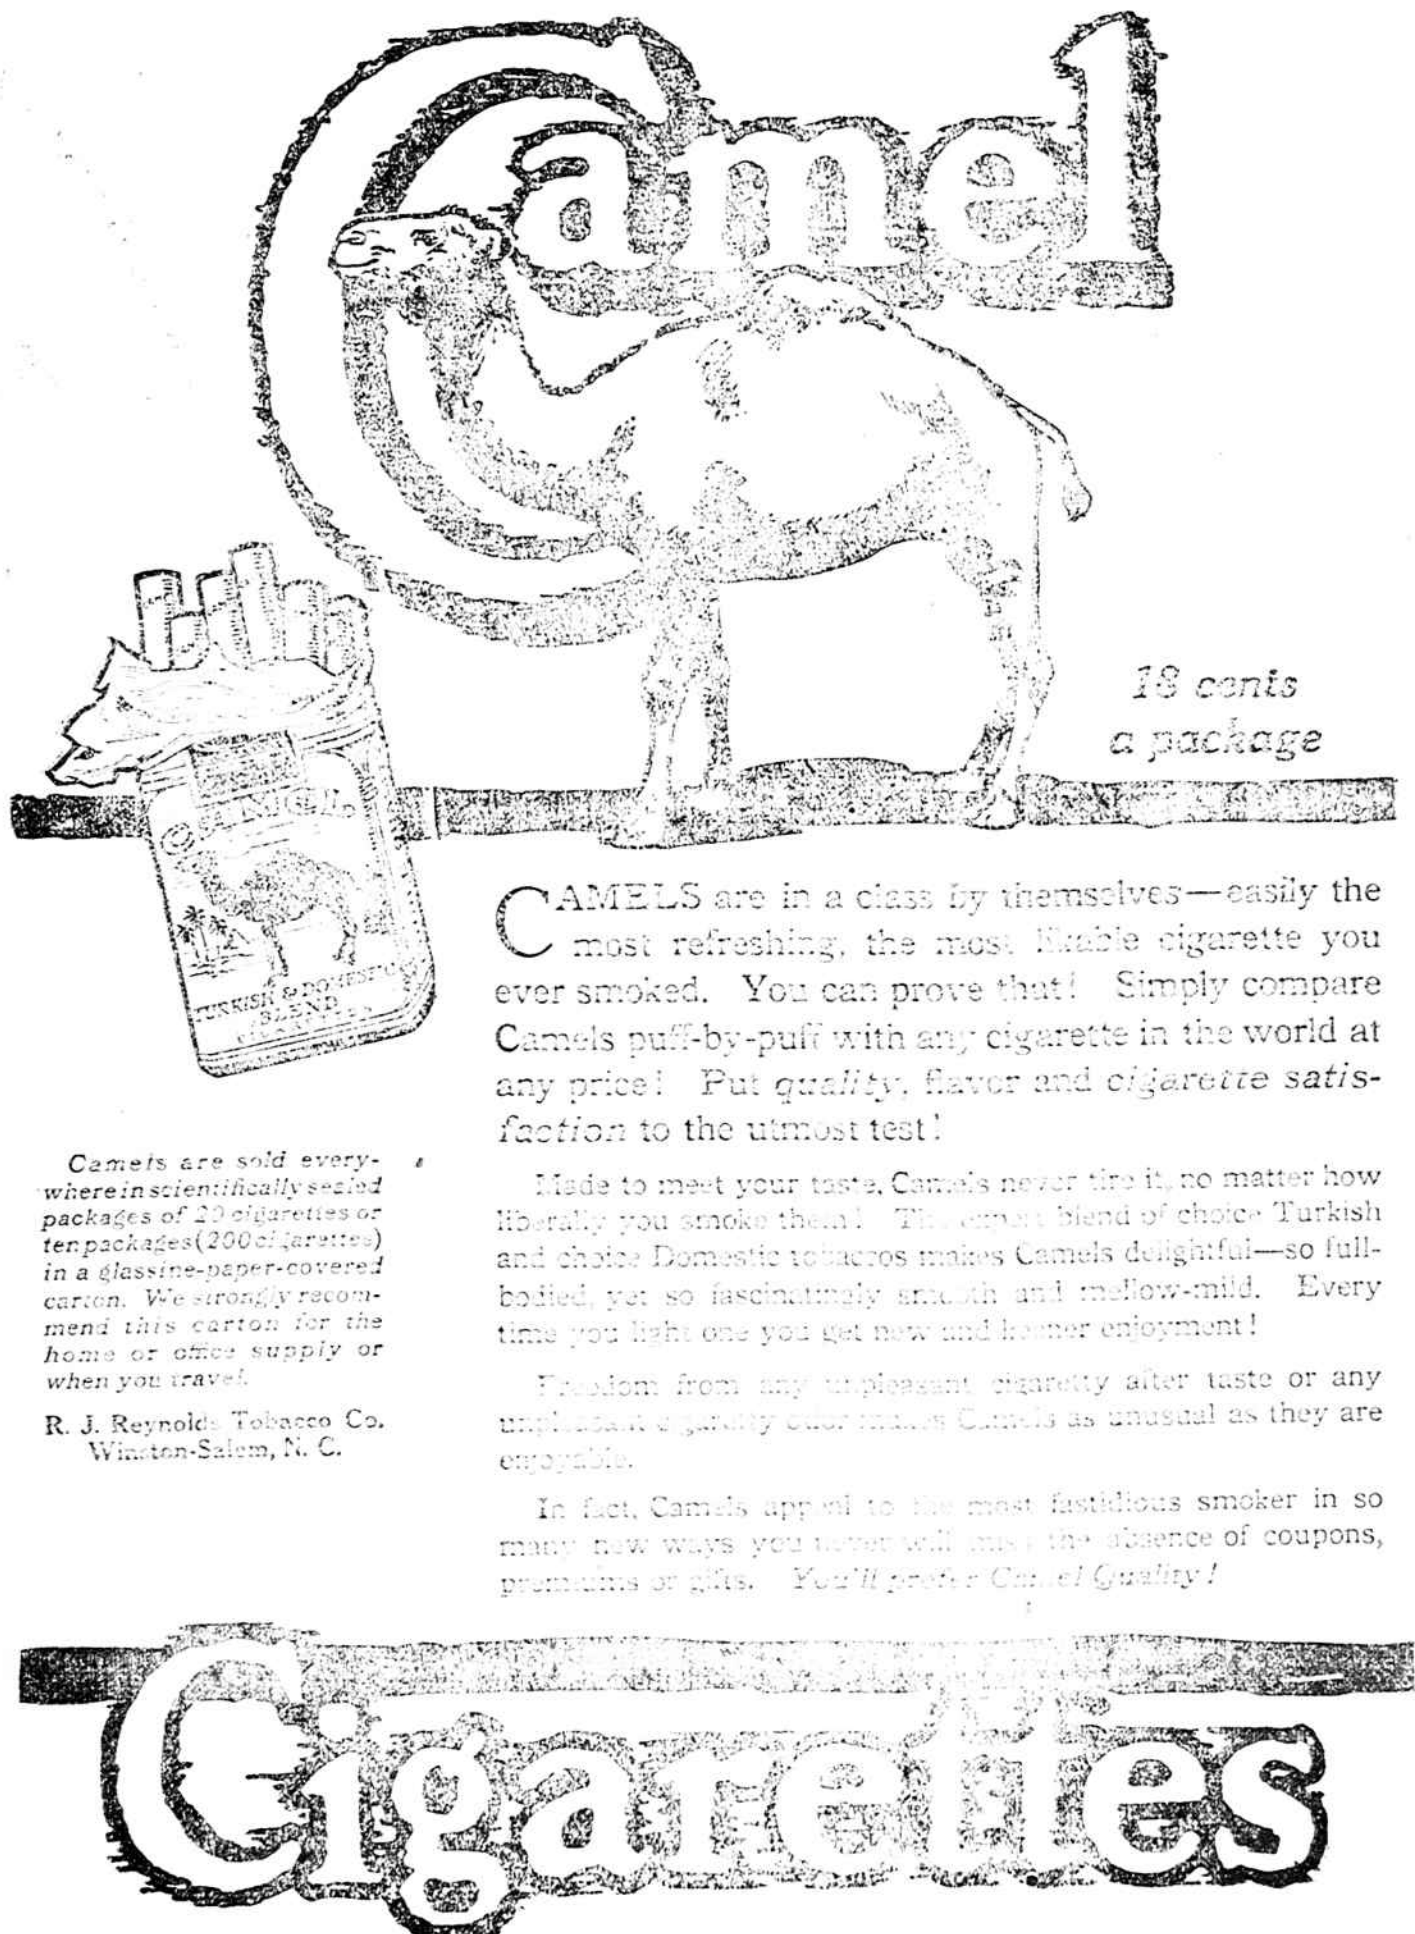 Camel
18 cents
a package
CAMEL
TURKISH & DOMESTIC
BLEND
CAMELS are in a class by themselves—easily the
most refreshing, the most likable cigarette you
ever smoked. You can prove that! Simply compare
Camels puff-by-puff with any cigarette in the world at
any price! Put quality, flavor and cigarette satis-
faction to the utmost test!
Made to meet your taste, Camels never tire it, no matter how
liberally you smoke them! The expert blend of choice Turkish
and choice Domestic tobaccos makes Camels delightful—so full-
bodied, yet so fascinatingly smooth and mellow-mild. Every
time you light one you get new and keener enjoyment!
Freedom from any unpleasant cigaretty after taste or any
unpleasant cigaretty odor makes Camels as unusual as they are
enjoyable.
In fact, Camels appeal to the most fastidious smoker in so
many new ways you never will miss the absence of coupons,
premiums or gifts. You'll prefer Camel Quality!
Camels are sold every-
where in scientifically sealed
packages of 20 cigarettes or
ten packages (200 cigarettes)
in a glassine-paper-covered
carton. We strongly recom-
mend this carton for the
home or office supply or
when you travel.
R. J. Reynolds Tobacco Co.
Winston-Salem, N. C.
Cigarettes